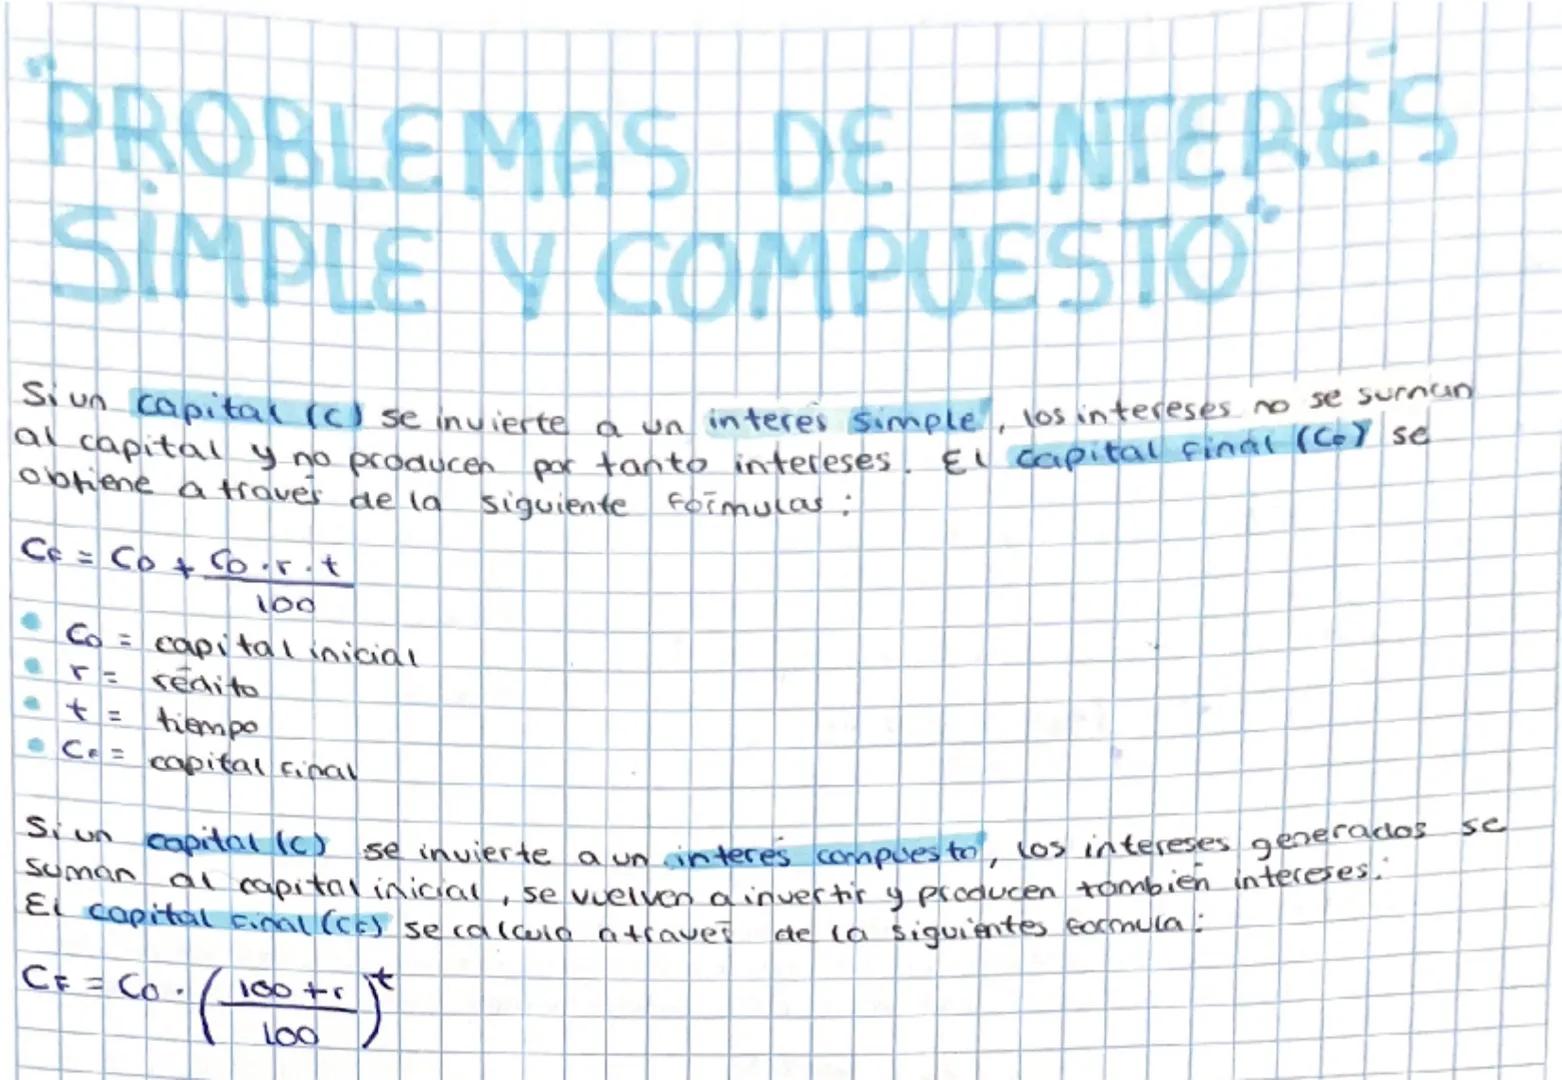 "PROBLEMAS DE INTERÉS
SIMPLE Y COMPUESTO"
Si un capital (C) se invierte a un interés simple, los intereses no se suman
al capital y no producen por tanto intereses. El capital final (Co) se
obtiene a través de la siguiente fórmulas:
CF = C0 + C0 · r · t
100
C0 = capital inicial
r = rédito
t = tiempo
CF = capital final
Si un capital (C) se invierte a un interés compuesto, los intereses generados se
suman al capital inicial, se vuelven a invertir y producen también intereses.
El capital final (CF) se calcula a través de la siguientes formula:
CF = C0 · (100 + r)t
100